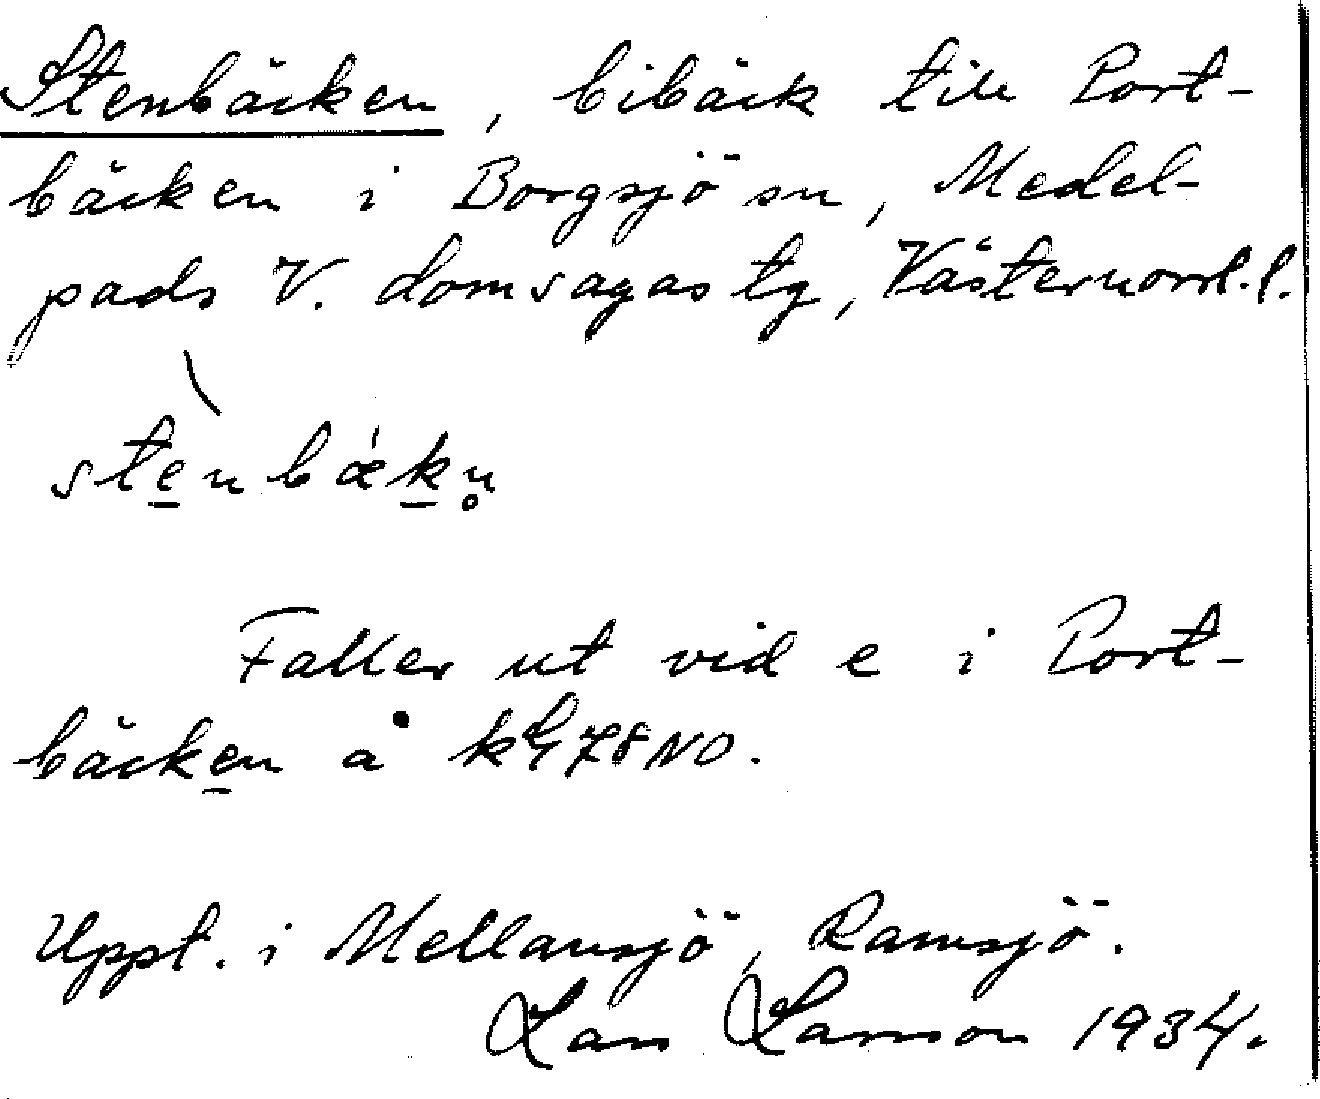 Stenbäcken, bibäck till Port-
bäcken i Borgsjö sn, Medel-
pads V. domsagas tg, Västernorrl. l.
stenbækn̥
Faller ut vid e i Port-
bäcken å kbl 78 NO.
Uppt. i Mellansjö, Ramsjö.
Lars Larsson 1934.